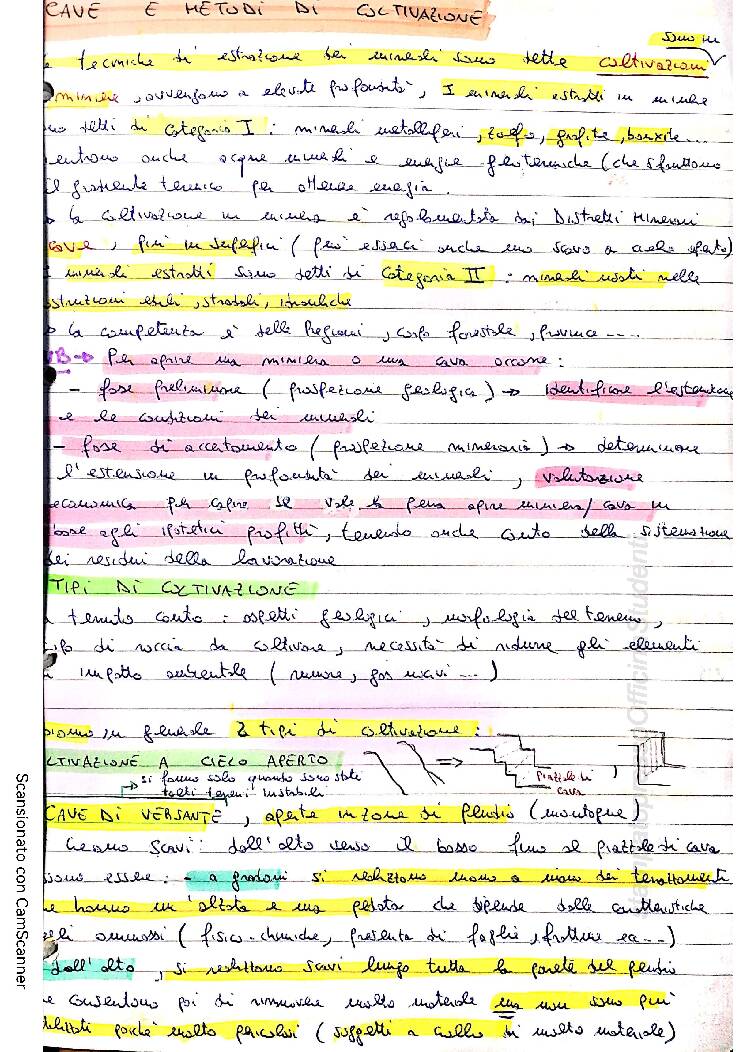 CAVE E METODI DI COLTIVAZIONE
sono in
e tecniche di estrazione dei minerali sono dette coltivazioni
miniere, avvengono a elevate profondità, I minerali estratti in miniere
no detti di Categoria I: minerali metalliferi, zolfo, grafite, bauxite...
entrano anche acque minerali e energie geotermiche (che sfruttano
il gradiente termico per ottenere energia.
La coltivazione in miniera è regolamentata dai Distretti Minerari
cave, più in superfici (può esserci anche uno scavo a cielo aperto)
I minerali estratti sono detti di Categoria II: minerali usati nelle
ostruzioni edili, stradali, idrauliche
la competenza è delle Regioni, corpo forestale, province ....
NB → Per aprire una miniera o una cava occorre:
- fase preliminare (prospezione geologica) → identificare l'estensione
e le condizioni dei minerali
- fase di accertamento (prospezione mineraria) → determinare
l'estensione in profondità dei minerali, valutazione
economica per capire se vale la pena aprire miniera/cava in
base agli ipotetici profitti, tenendo anche conto della sistemazione
dei residui della lavorazione
TIPI DI COLTIVAZIONE
tenuto conto: aspetti geologici, morfologia del terreno,
tipo di roccia da coltivare, necessità di ridurre gli elementi
di impatto ambientale (rumore, gas nocivi ...)
in generale 2 tipi di coltivazione:
LTIVAZIONE A CIELO APERTO
si fanno solo quando sono stati
tolti terreni instabili
Piazzale di
cava
CAVE DI VERSANTE, aperte in zone di pendio (montagne)
creano scavi: dall'alto verso il basso fino al piazzale di cava
ssono essere: - a gradoni si realizzano mano a mano dei terrazzamenti
e hanno un'alzata e una pedata che dipende dalle caratteristiche
egli ammassi (fisico-chimiche, presenza di faglie, fratture ecc...)
dall'alto, si realizzano scavi lungo tutta la parete del pendio
e consentono poi di rimuovere molto materiale ma non sono più
utilizzati poiché molto pericolosi (soggetti a crollo di molto materiale)
Officina Studenti
Scansionato con CamScanner